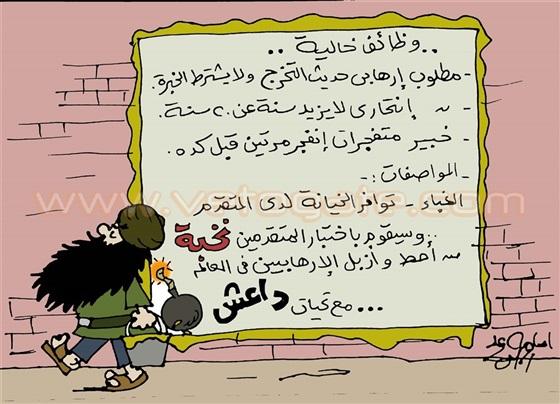 ..وظائف خالية ..
- مطلوب إرهابى حديث التخرج ولا يشترط الخبرة.
- " إنتحارى لا يزيد سنة عن ٢٠ سنة.
- خبير متفجرات إنفجر مرتين قبل كده.
- المواصفات :-
الغباء - توافر الخيانة لدى المتقدم
..وسيقوم باختبار المتقدمين نخبة
من أحط وأزبل الإرهابيين فى العالم
... مع تحيات داعش
www.vetogate.com